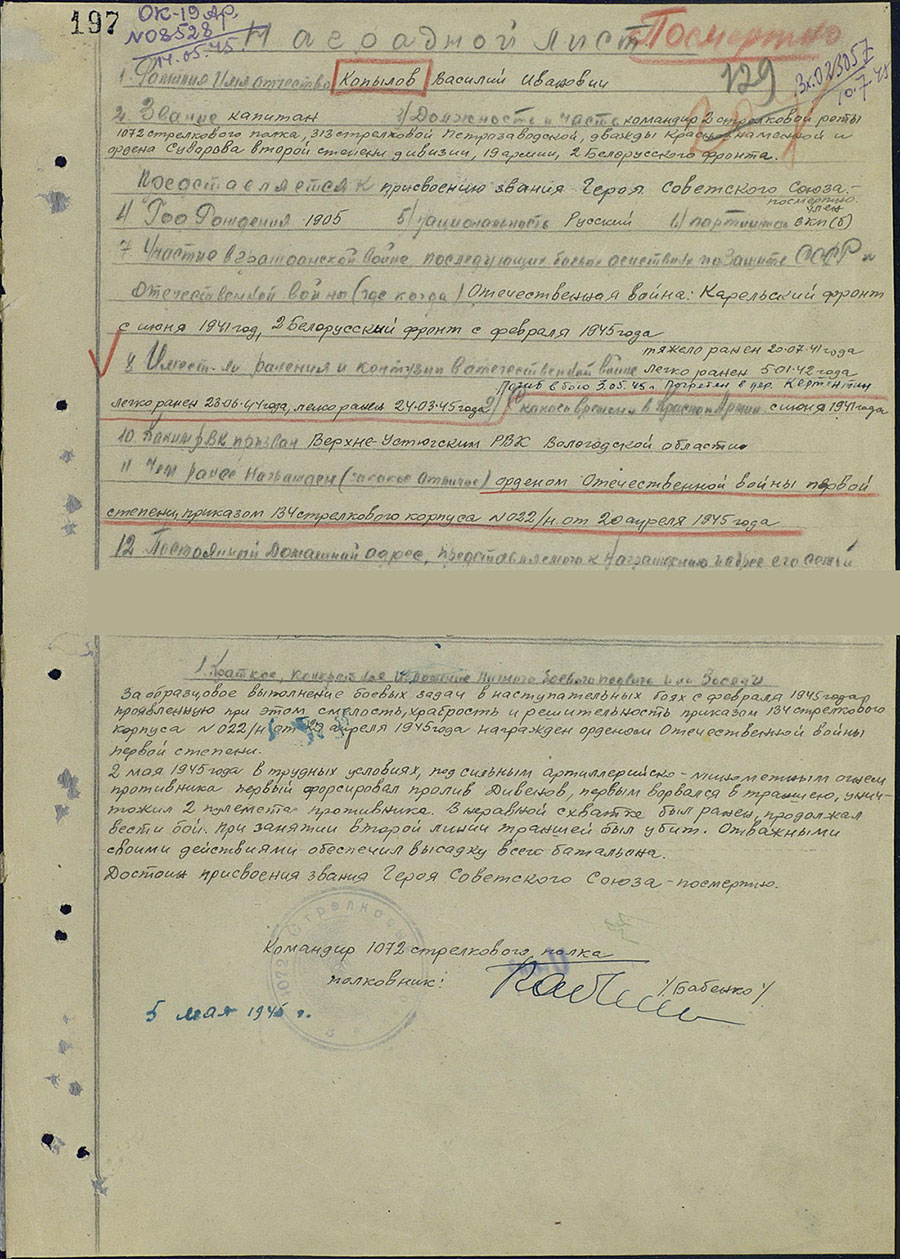 197
ОК-19 Ар.
№08528
14.05.45
Наградной лист
Посмертно
129
Вх.023057
10.7.45
1. Фамилия Имя отчество Копылов Василий Иванович
2. Звание капитан 3) Должность и часть командир 2 стрелковой роты
1072 стрелкового полка, 313 стрелковой Петрозаводской, дважды Краснознаменной и
ордена Суворова второй степени дивизии, 19 армии, 2 Белорусского фронта.
Представляется к присвоению звания Героя Советского Союза.-
посмертно.
4) Год Рождения 1905 5) национальность Русский 6) партийность член ВКП(б)
7 Участие в гражданской войне, последующих боевых действиях по защите СССР и
отечественной войны (где когда) Отечественная война: Карельский фронт
с июня 1941 год, 2 Белорусский фронт с февраля 1945 года
тяжело ранен 20.07.41 года
8 Имеет-ли ранения и контузии в отечественной войне легко ранен 5.01.42 года
Погиб в бою 3.05.45 г. Погребен в дер. Кертентин
легко ранен 23.06.44 года, легко ранен 24.03.45 года 9) с какого времени в Красной Армии с июня 1941 года
10. Каким РВК призван Верхне-Устюгским РВК Вологодской области
11 Чем ранее награжден (за какое отличие) орденом Отечественной войны первой
степени, приказом 134 стрелкового корпуса №022/н. от 20 апреля 1945 года
12 Постоянный домашний адрес, представляемого к награждению и адрес его семьи
1 Краткое, конкретное изложение личного боевого подвига или заслуг
За образцовое выполнение боевых задач в наступательных боях с февраля 1945 года,
проявленную при этом смелость, храбрость и решительность приказом 134 стрелкового
корпуса №022/н от 20 апреля 1945 года награжден орденом Отечественной войны
первой степени.
2 мая 1945 года в трудных условиях, под сильным артиллерийско-минометным огнем
противника первый форсировал пролив Дивенов, первым ворвался в траншею, унич-
тожил 2 пулемета противника. В неравной схватке был ранен, продолжал
вести бой. При занятии второй линии траншей был убит. Отважными
своими действиями обеспечил высадку всего батальона.
Достоин присвоения звания Героя Советского Союза - посмертно.
Командир 1072 стрелкового полка
полковник: /Бабенко/
5 мая 1945 г.